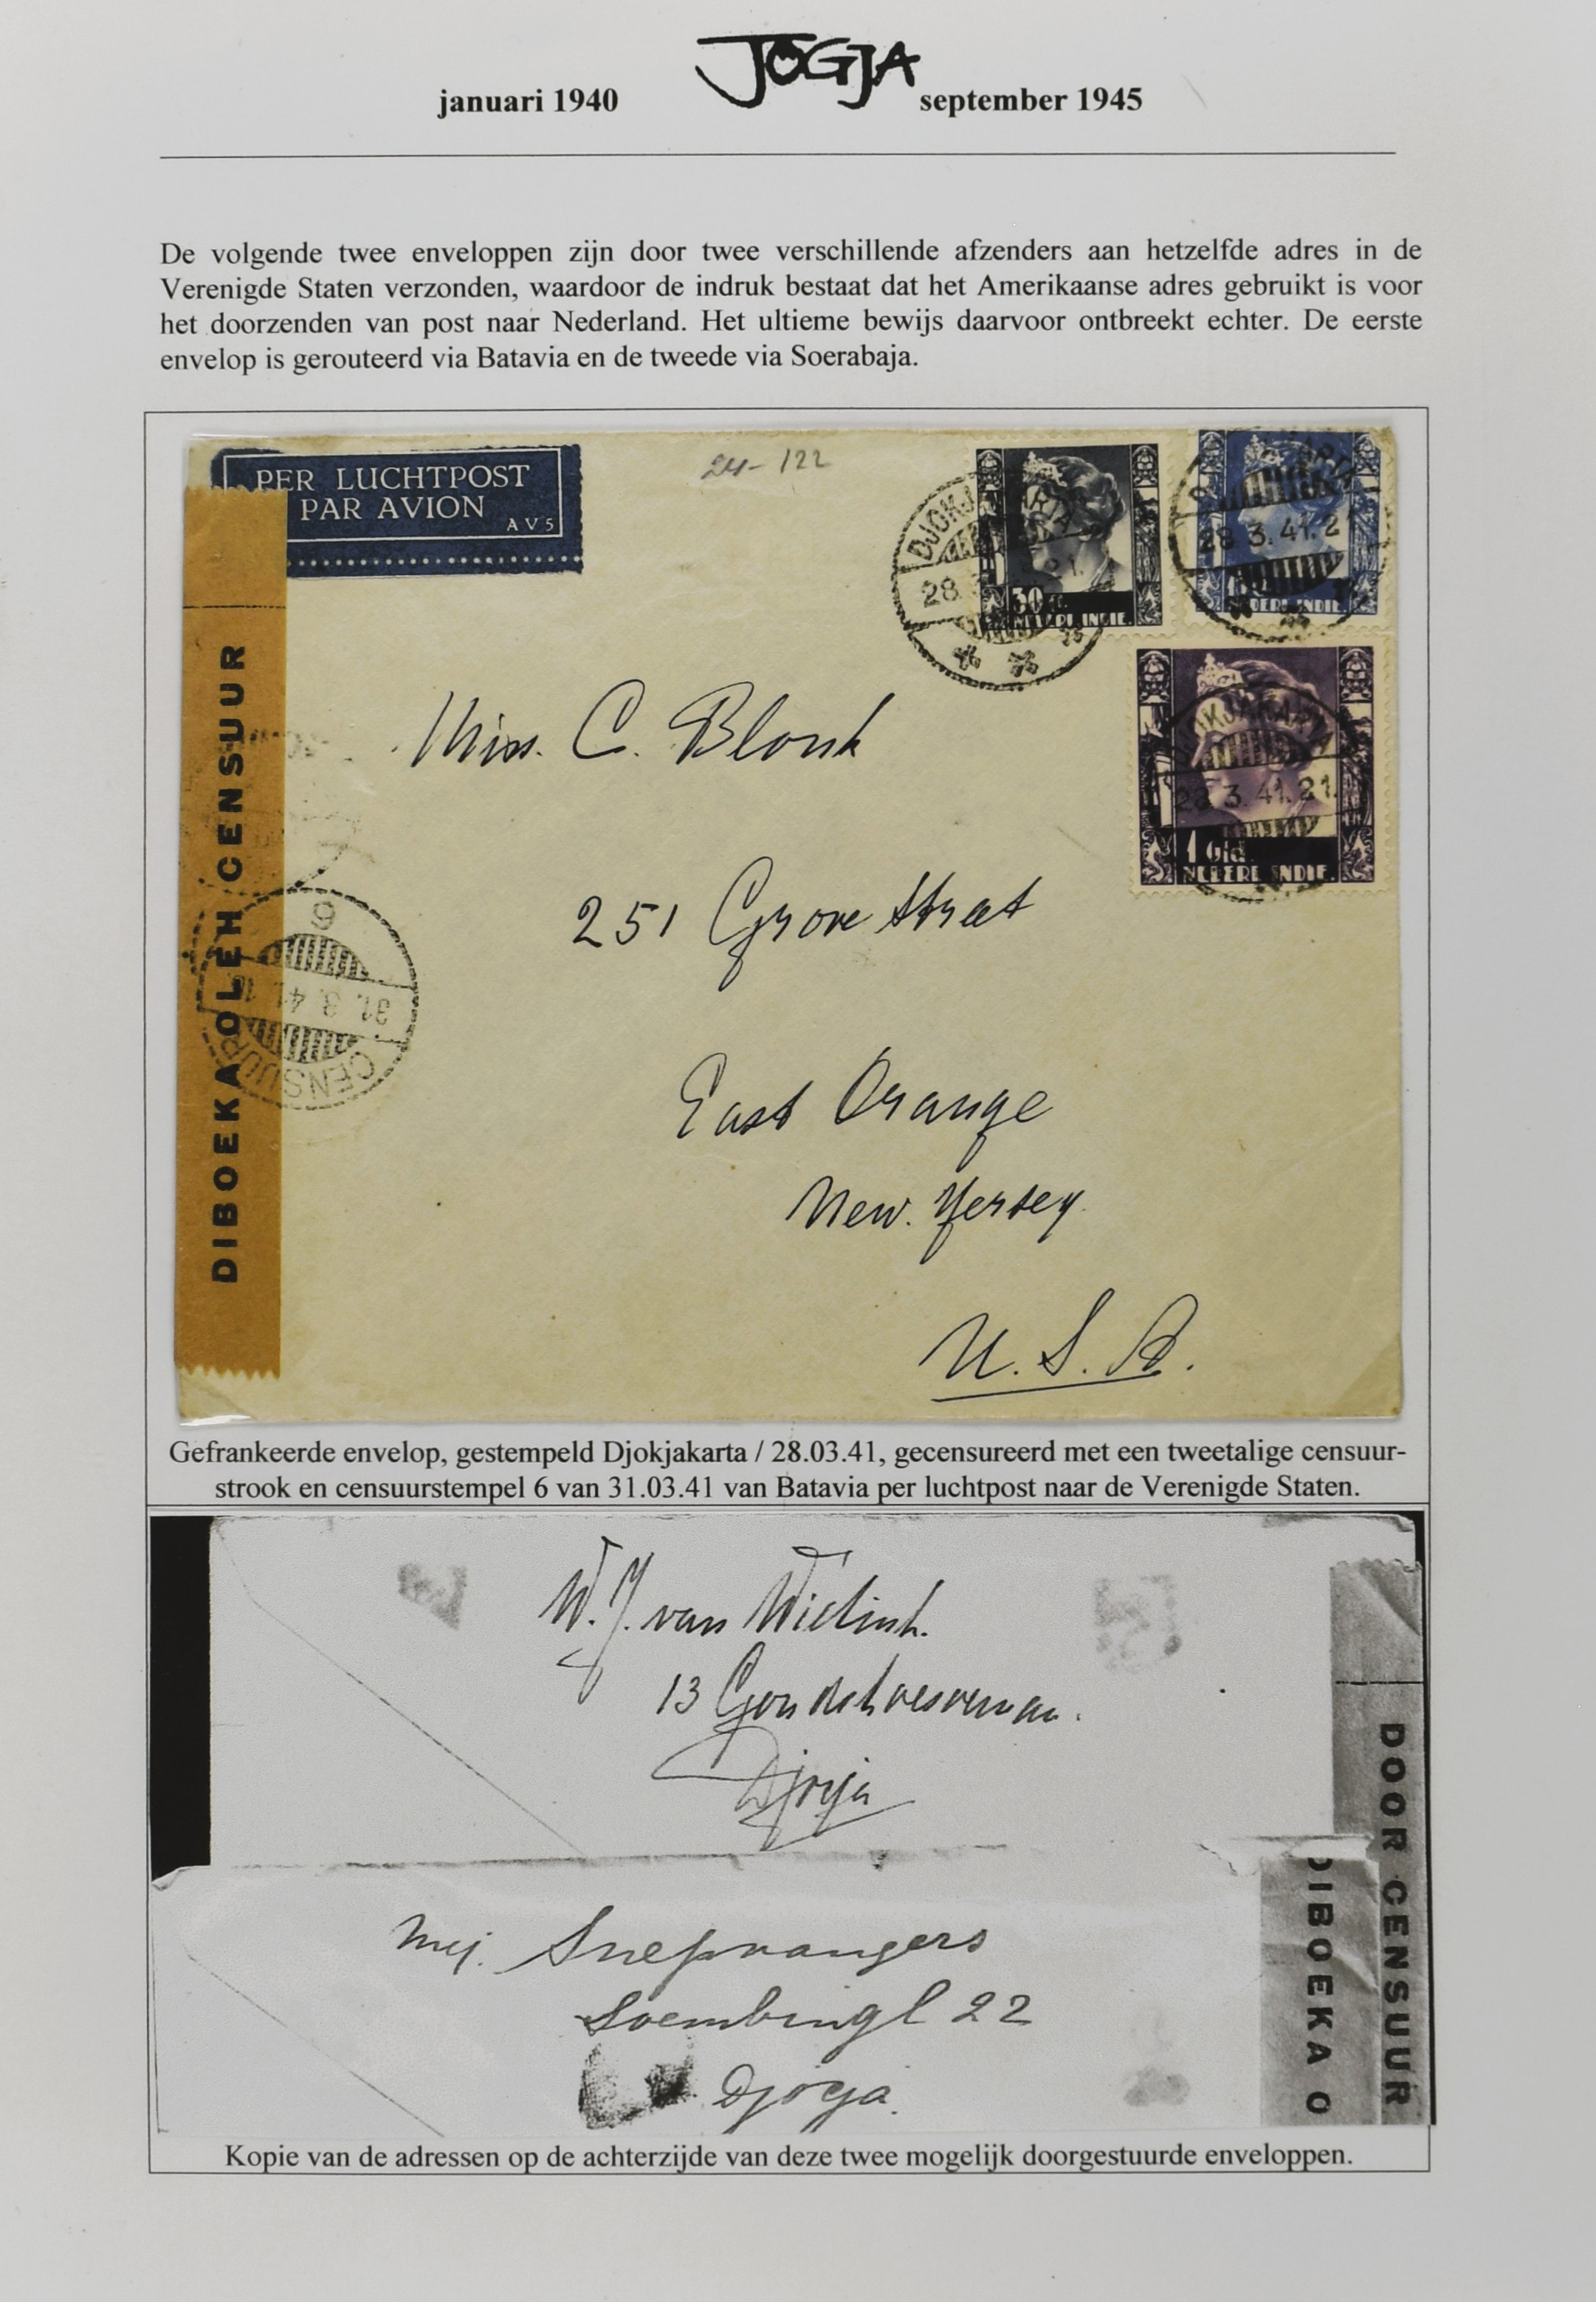 JOGJA
januari 1940 september 1945
De volgende twee enveloppen zijn door twee verschillende afzenders aan hetzelfde adres in de
Verenigde Staten verzonden, waardoor de indruk bestaat dat het Amerikaanse adres gebruikt is voor
het doorzenden van post naar Nederland. Het ultieme bewijs daarvoor ontbreekt echter. De eerste
envelop is gerouteerd via Batavia en de tweede via Soerabaja.
PER LUCHTPOST
PAR AVION
AV5
24-122
DJOKJAKARTA
28.3
21.
30 c.
NEDERL INDIE
28.3.41.2
NEDERL INDIE
DJOKJAKARTA
28.3.41.21.
1 Gld.
NEDERL INDIE.
DIBOEKA OLEH CENSUUR
6
31.3.41
CENSUUR
Miss. C. Blonk
251 Grove Street
East Orange
New. Yersey.
U.S.A.
Gefrankeerde envelop, gestempeld Djokjakarta / 28.03.41, gecensureerd met een tweetalige censuur-
strook en censuurstempel 6 van 31.03.41 van Batavia per luchtpost naar de Verenigde Staten.
W.J. van Wielink.
13
Djogja
DOOR CENSUUR
Mej. Snepvangers
Soembingl 22
Djogja.
DIBOEKA O
Kopie van de adressen op de achterzijde van deze twee mogelijk doorgestuurde enveloppen.